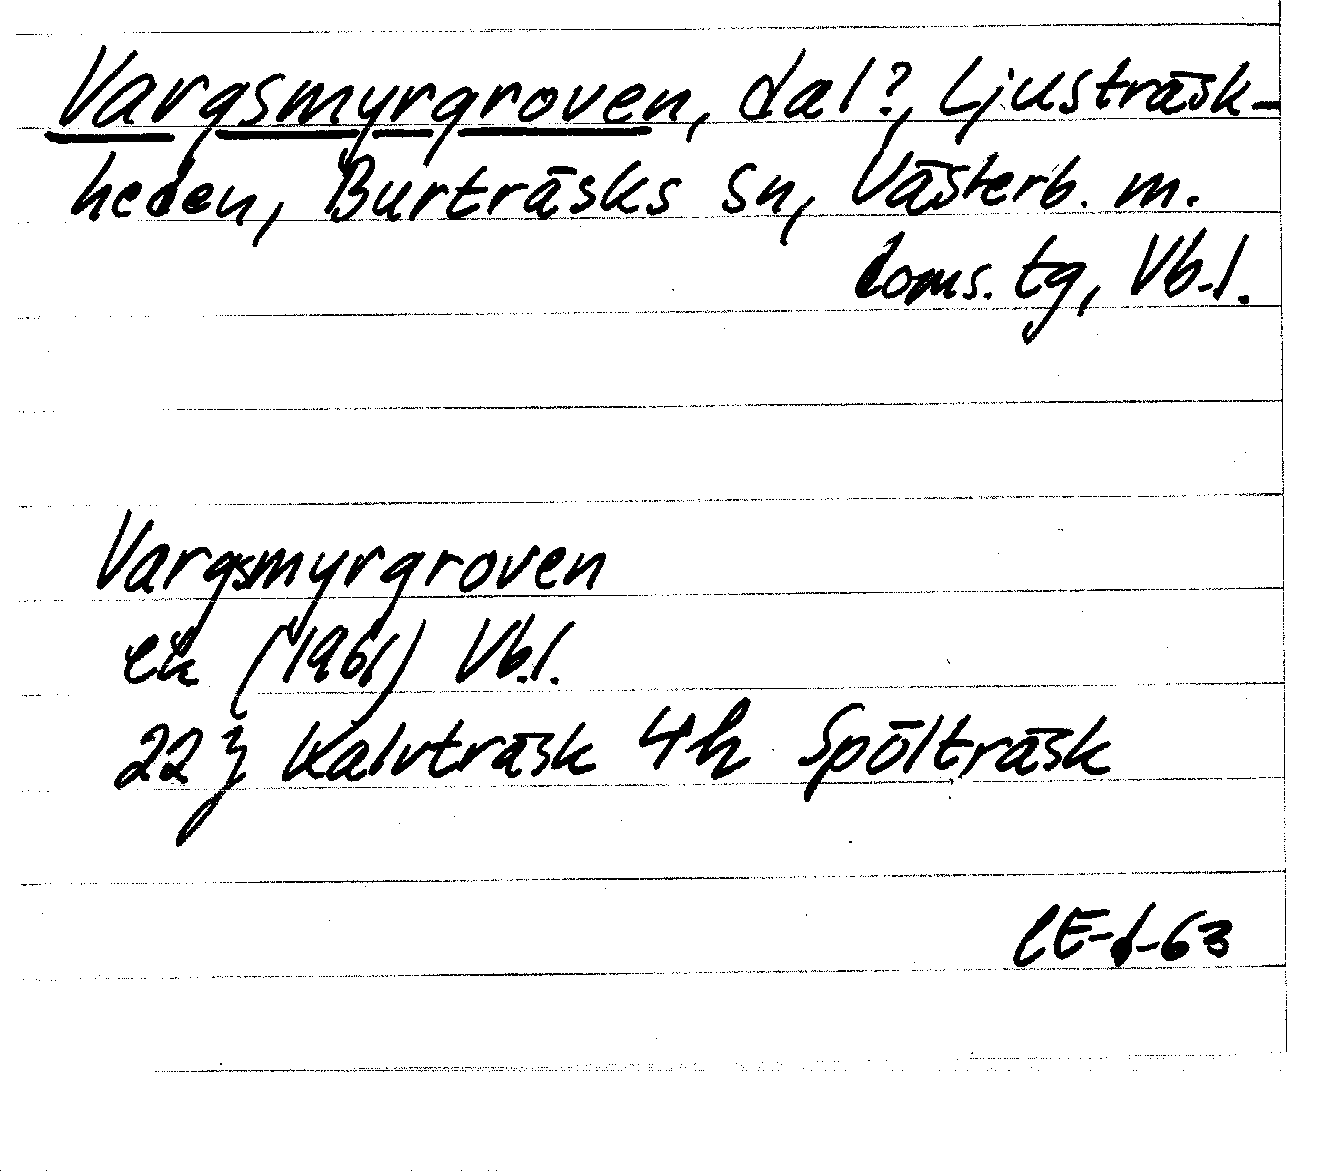 Vargsmyrgroven, dal?, Ljusträsk-
heden, Burträsks sn, Västerb. m.
doms. tg, Vb. l.
Vargsmyrgroven
ek (1961) Vb. l.
22 J Kalvträsk 4h Spölträsk
CE-d-63